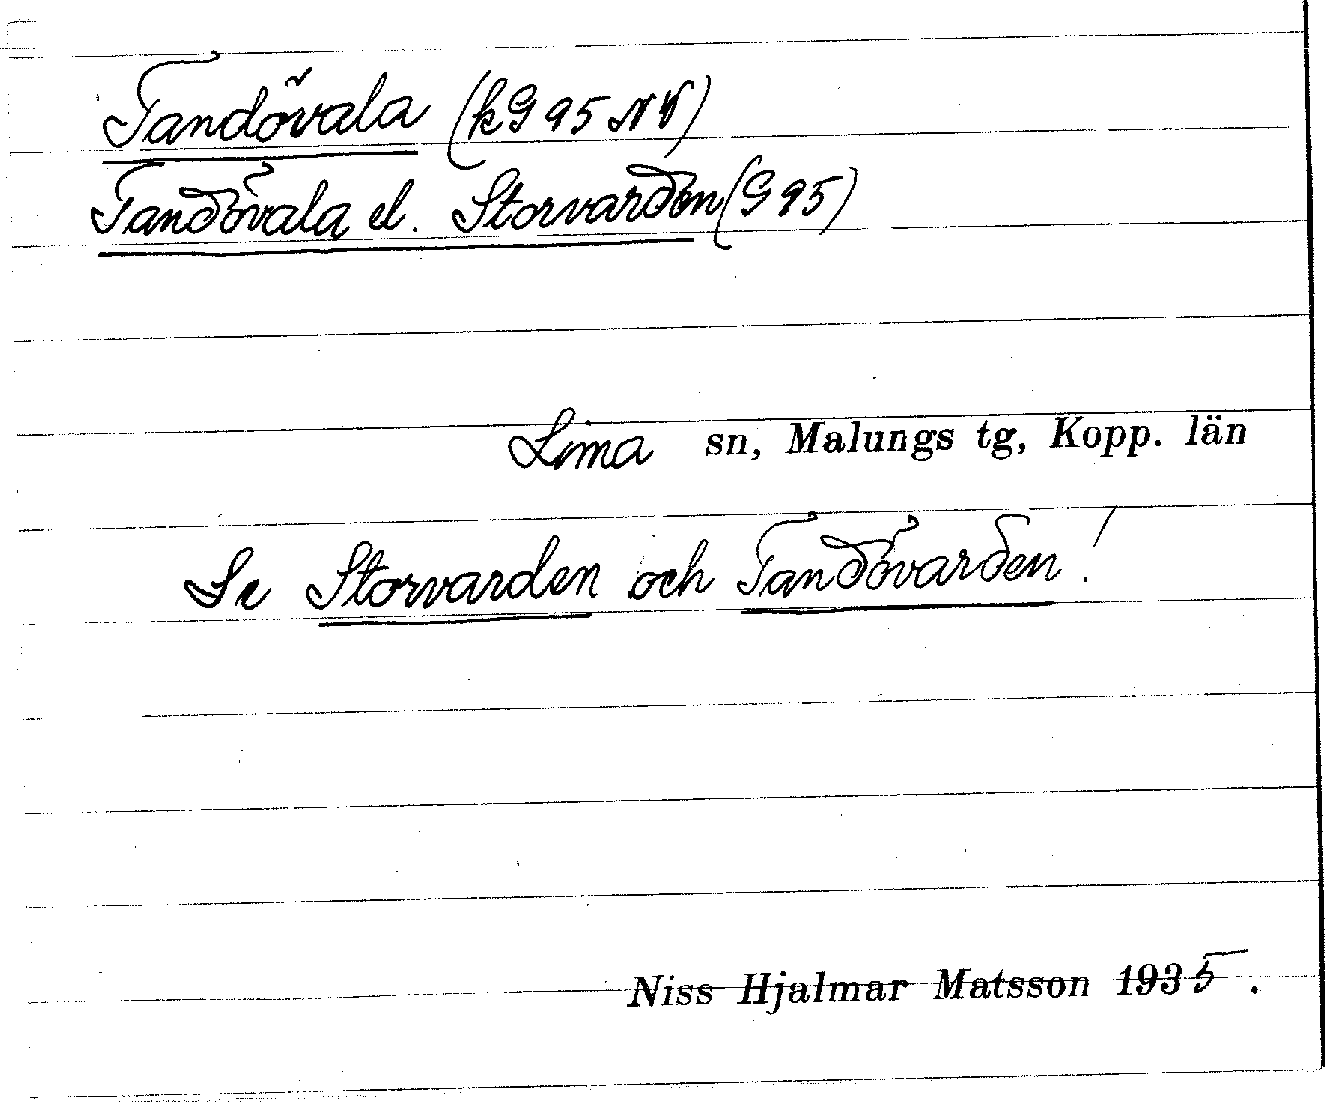 Tandövala (kG 95 NV)
Tandövala el. Storvarden (G 95)
Lima sn, Malungs tg, Kopp. län
Se Storvarden och Tandövarden!
Niss Hjalmar Matsson 1935.